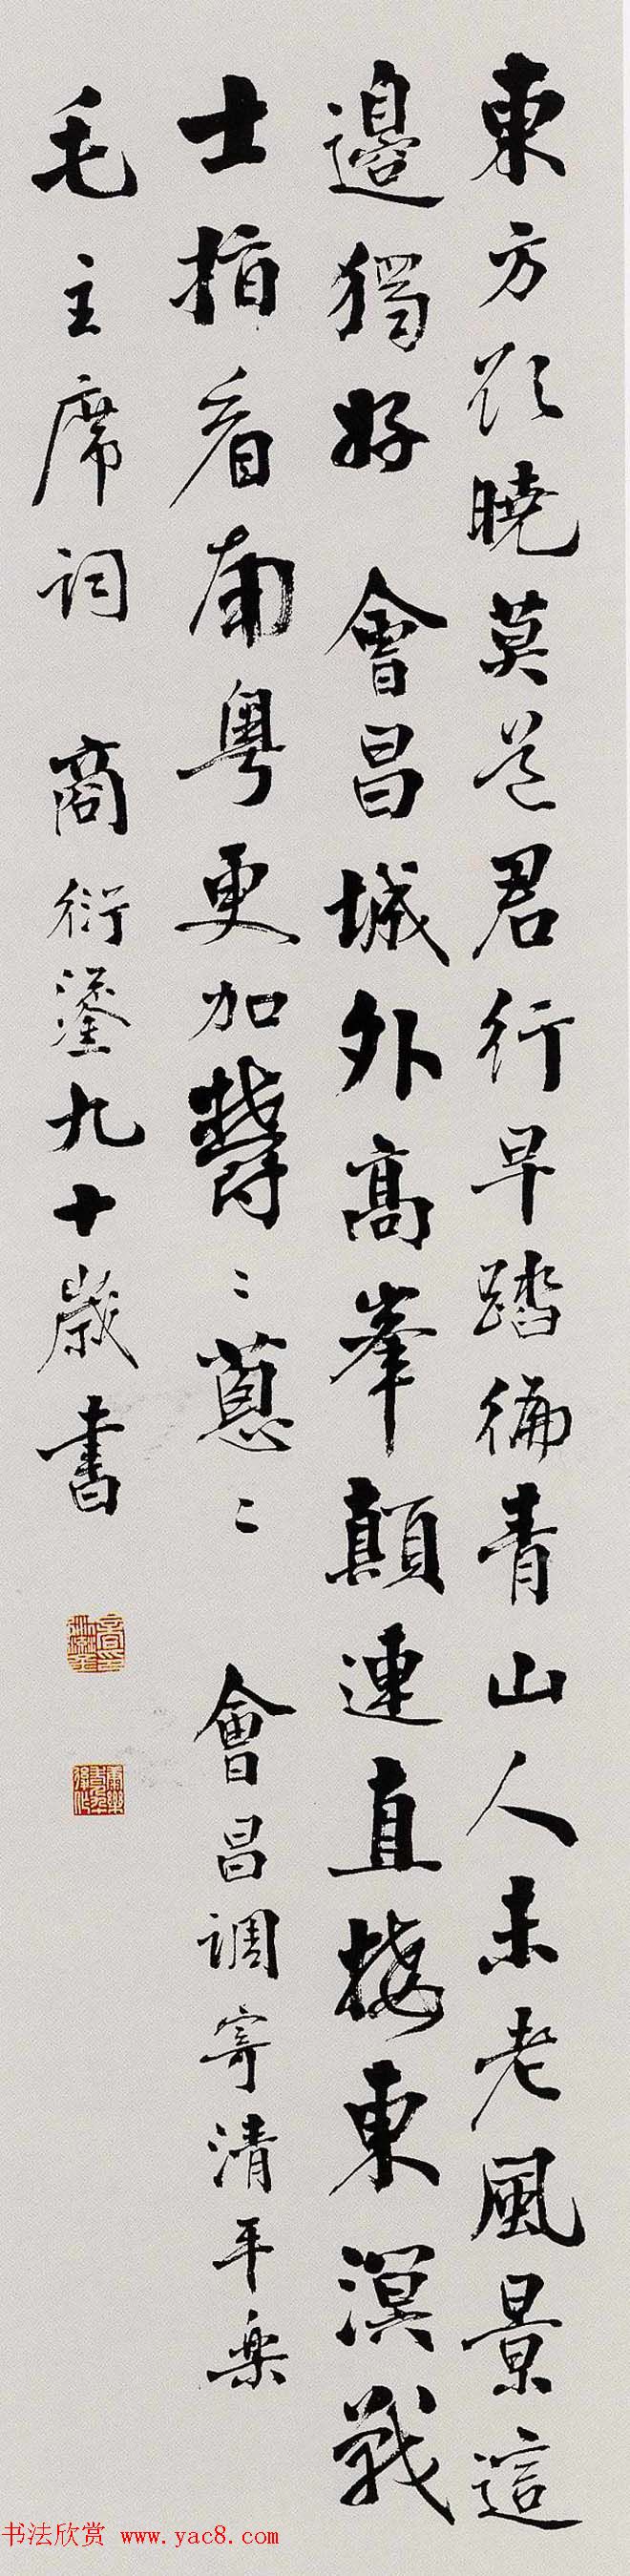 東方欲曉莫道君行早踏徧青山人未老風景這
邊獨好 會昌城外高峯顛連直接東溟戰
士指看南粤更加鬱〻蔥〻 會昌調寄清平樂
毛主席詞 商衍鎏九十歲書
商衍鎏印
书法欣赏 www.yac8.com